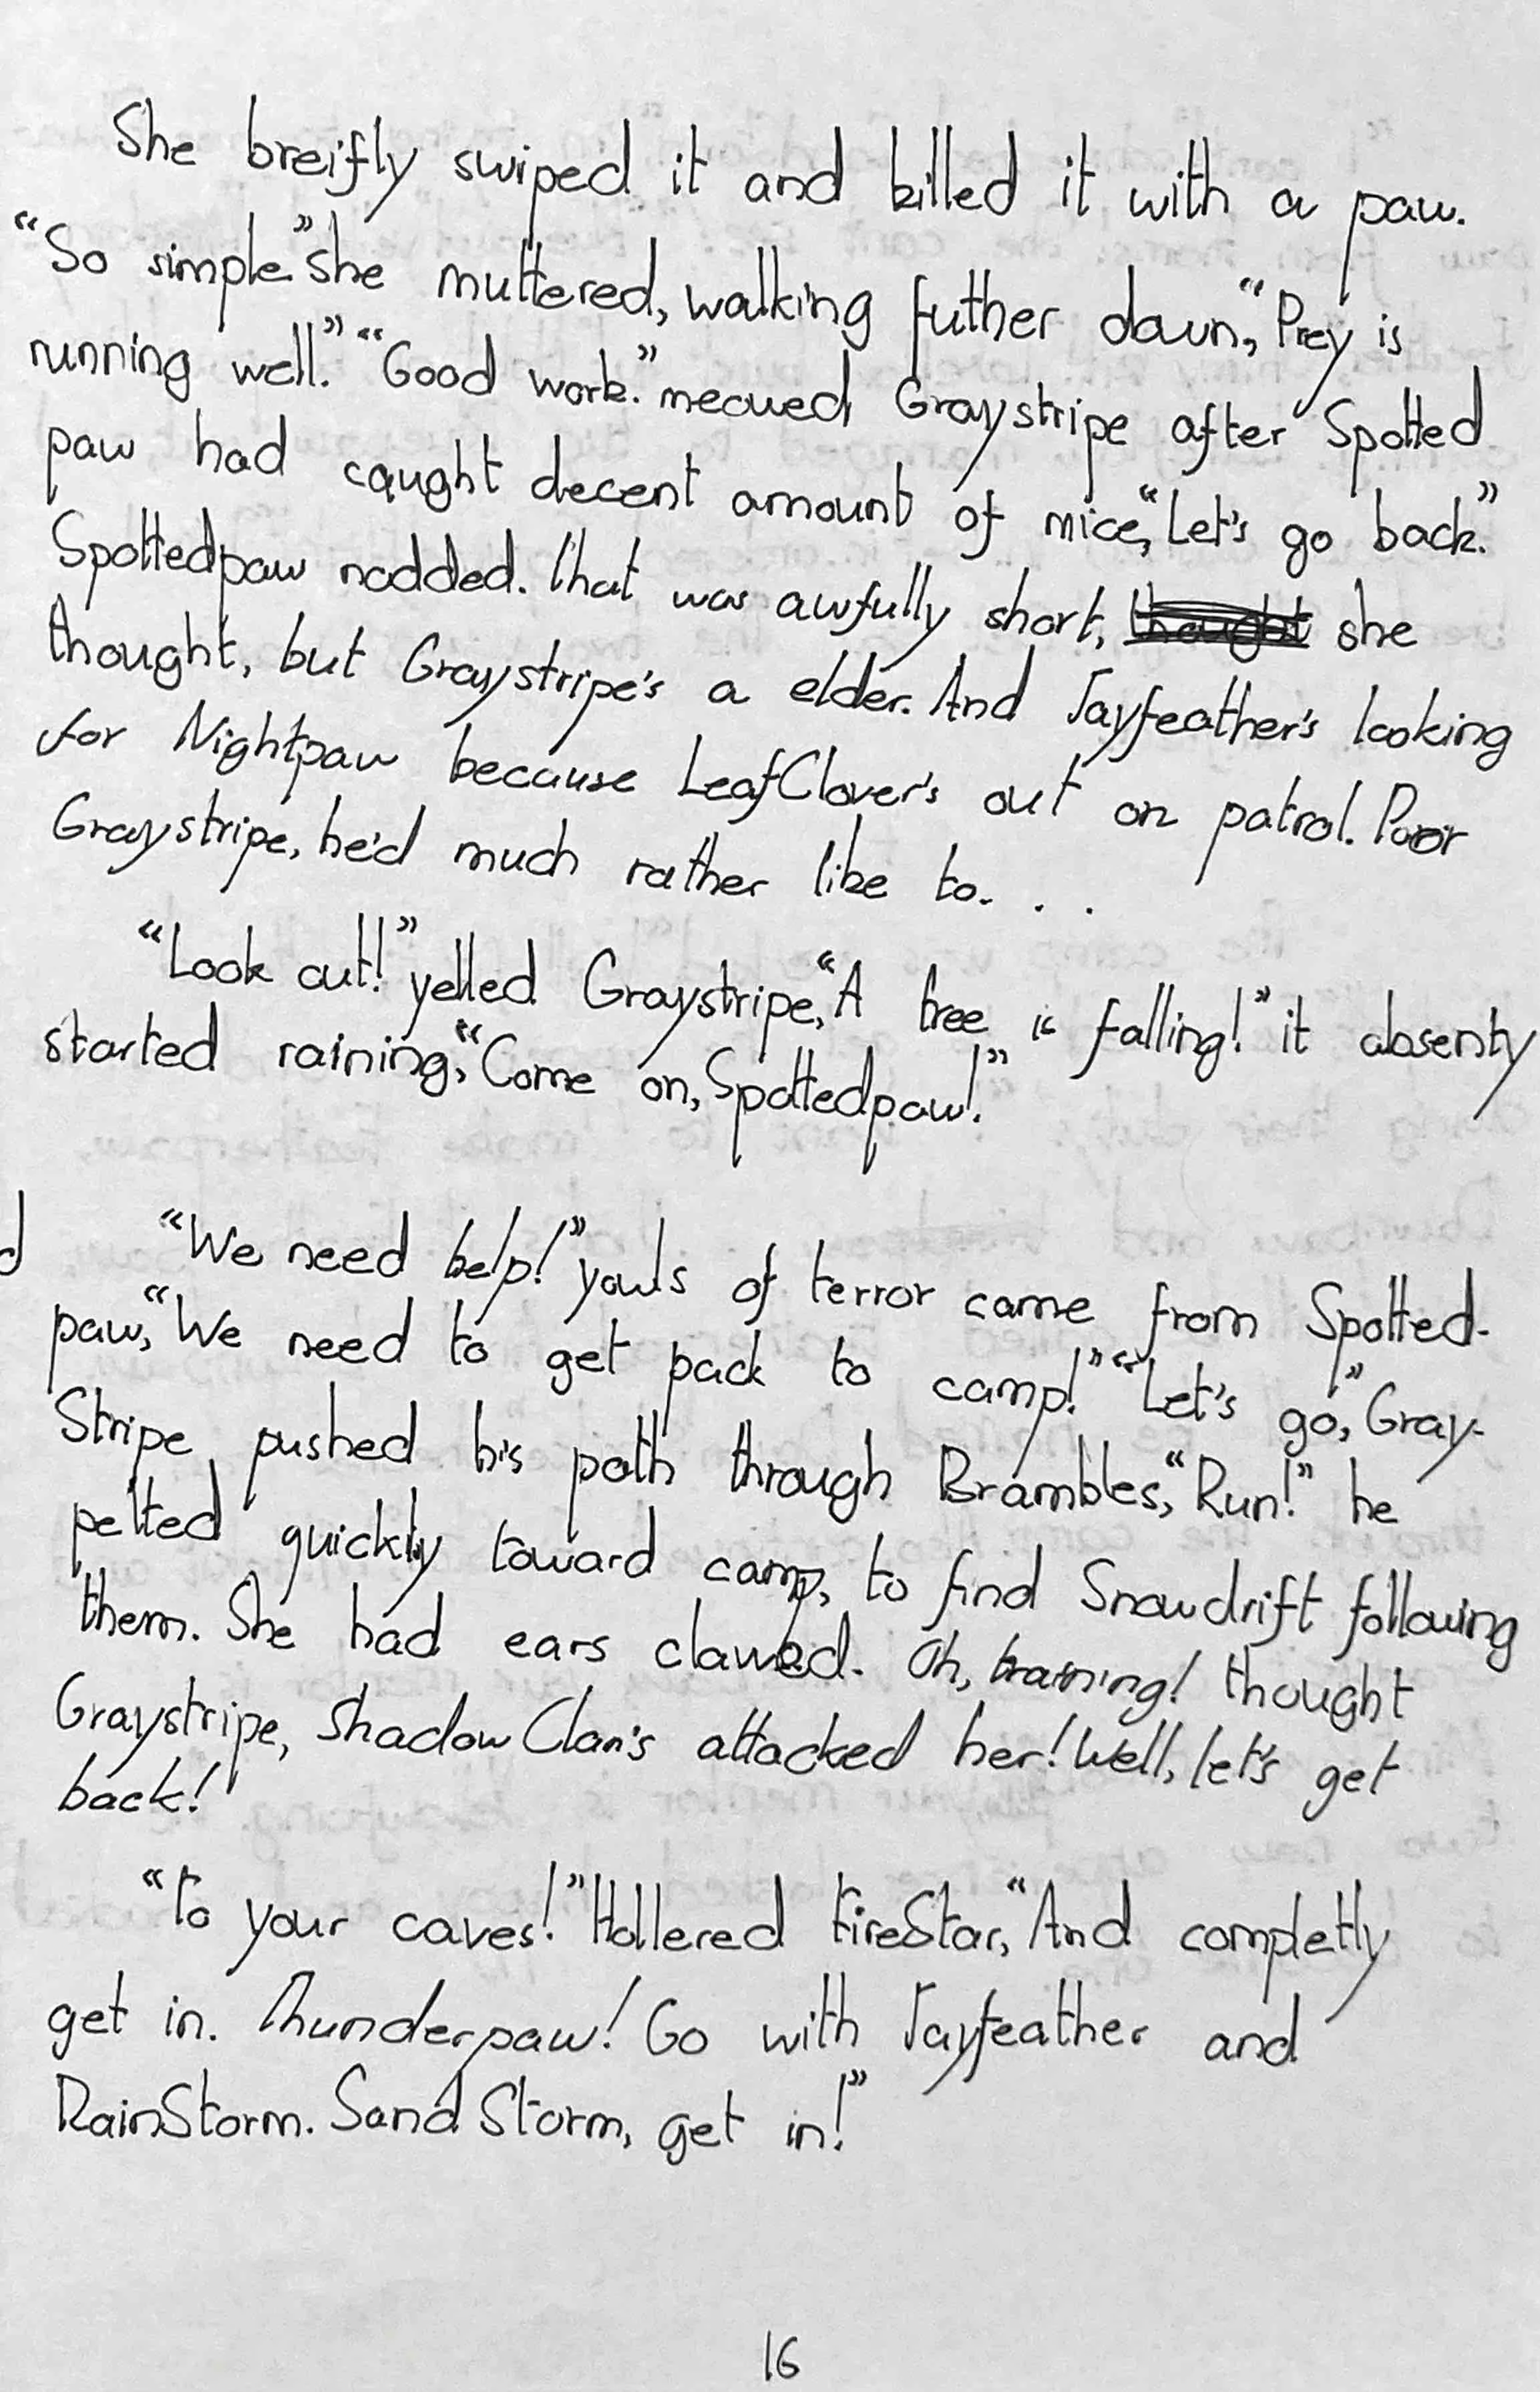 She breifly swiped it and killed it with a paw.
“So simple” she muttered, walking futher down, “Prey is
running well.” “Good work.” meowed Graystripe after Spotted
paw had caught decent amount of mice, “Let's go back.”
Spottedpaw nodded. That was awfully short, thought she
thought, but Graystripe's a elder. And Jayfeather's looking
for Nightpaw because LeafClover's out on patrol. Poor
Graystripe, he'd much rather like to. . .
“Look out!” yelled Graystripe, “A tree is falling!” it absenty
started raining, “Come on, Spottedpaw!”
“We need help!” yowls of terror came from Spotted-
paw, “We need to get pack to camp!” “Let's go,” Gray-
Stripe pushed his path through Brambles, “Run!” he
pelted quickly toward camp, to find Snowdrift following
them. She had ears clawed. Oh, training! thought
Graystripe, ShadowClan's attacked her! Well, let's get
back!
“To your caves!” Hollered FireStar, “And completly
get in. Thunderpaw! Go with Jayfeather and
RainStorm. SandStorm, get in!”
16